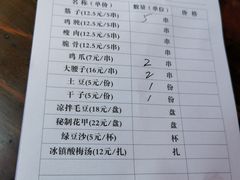 名称(单价) 数量(单位) 价格
筋子(12.5元/5串) 5 串
鸡胗(12.5元/5串) 串
瘦肉(12.5元/5串) 串
脆骨(12.5元/5串) 串
鸡爪(7元/串) 2 串
大腰子(16元/串) 2 串
土豆(5元/份) 1 份
干子(5元/份) 1 份
凉拌毛豆(18元/盘) 盘
秘制花甲(22元/盘) 盘
绿豆沙(5元/杯) 杯
冰镇酸梅汤(12元/扎) 扎